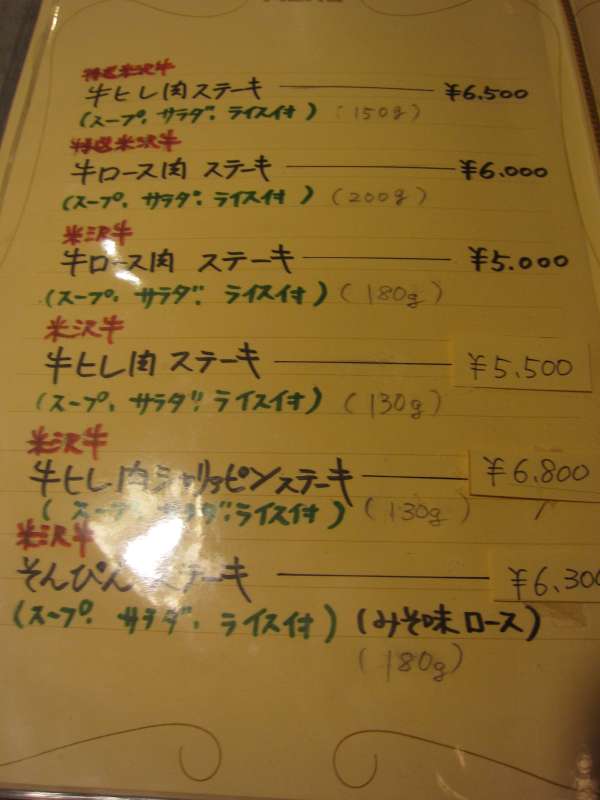 特選米沢牛
牛ヒレ肉ステーキ ¥6.500
(スープ、サラダ、ライス付) (150g)
特選米沢牛
牛ロース肉 ステーキ ¥6.000
(スープ、サラダ、ライス付) (200g)
米沢牛
牛ロース肉 ステーキ ¥5.000
(スープ、サラダ、ライス付) (180g)
米沢牛
牛ヒレ肉 ステーキ ¥5.500
(スープ、サラダ、ライス付) (130g)
米沢牛
牛ヒレ肉シャリアピンステーキ ¥6.800
(スープ、サラダ、ライス付) (130g)
米沢牛
そんぴん ステーキ ¥6.300
(スープ、サラダ、ライス付) (みそ味ロース)
(180g)